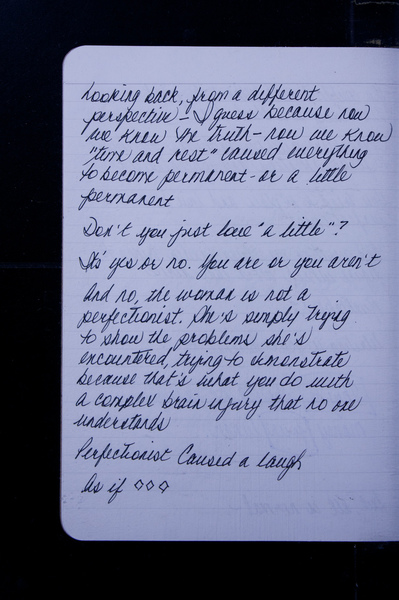 Looking back, from a different
perspective - I guess because now
we know the truth - now we know
"time and rest" caused everything
to become permanent - or a little
permanent
Don't you just love "a little"?
It's yes or no. You are or you aren't
And no, the woman is not a
perfectionist. She's simply trying
to show the problems she's
encountered, trying to demonstrate
because that's what you do with
a complex brain injury that no one
understands
Perfectionist Caused a laugh
As if ◇◇◇